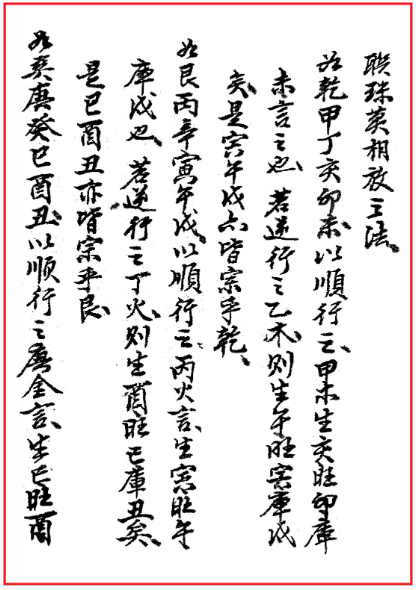 聫珠英相放三法、
如乾甲丁亥卯未、以順行之、甲木生亥旺卯庫
未言之也、若逆行之乙木、則生午旺寅庫戌
矣、是寅午戌亦皆宗乎乾、
如艮丙辛寅午戌、以順行之、丙火言、生寅旺午
庫戌也、若逆行之丁火、則生酉旺巳庫丑矣、
是巳酉丑亦皆宗乎艮、
如巽庚癸巳酉丑、以順行之庚金言、生巳旺酉